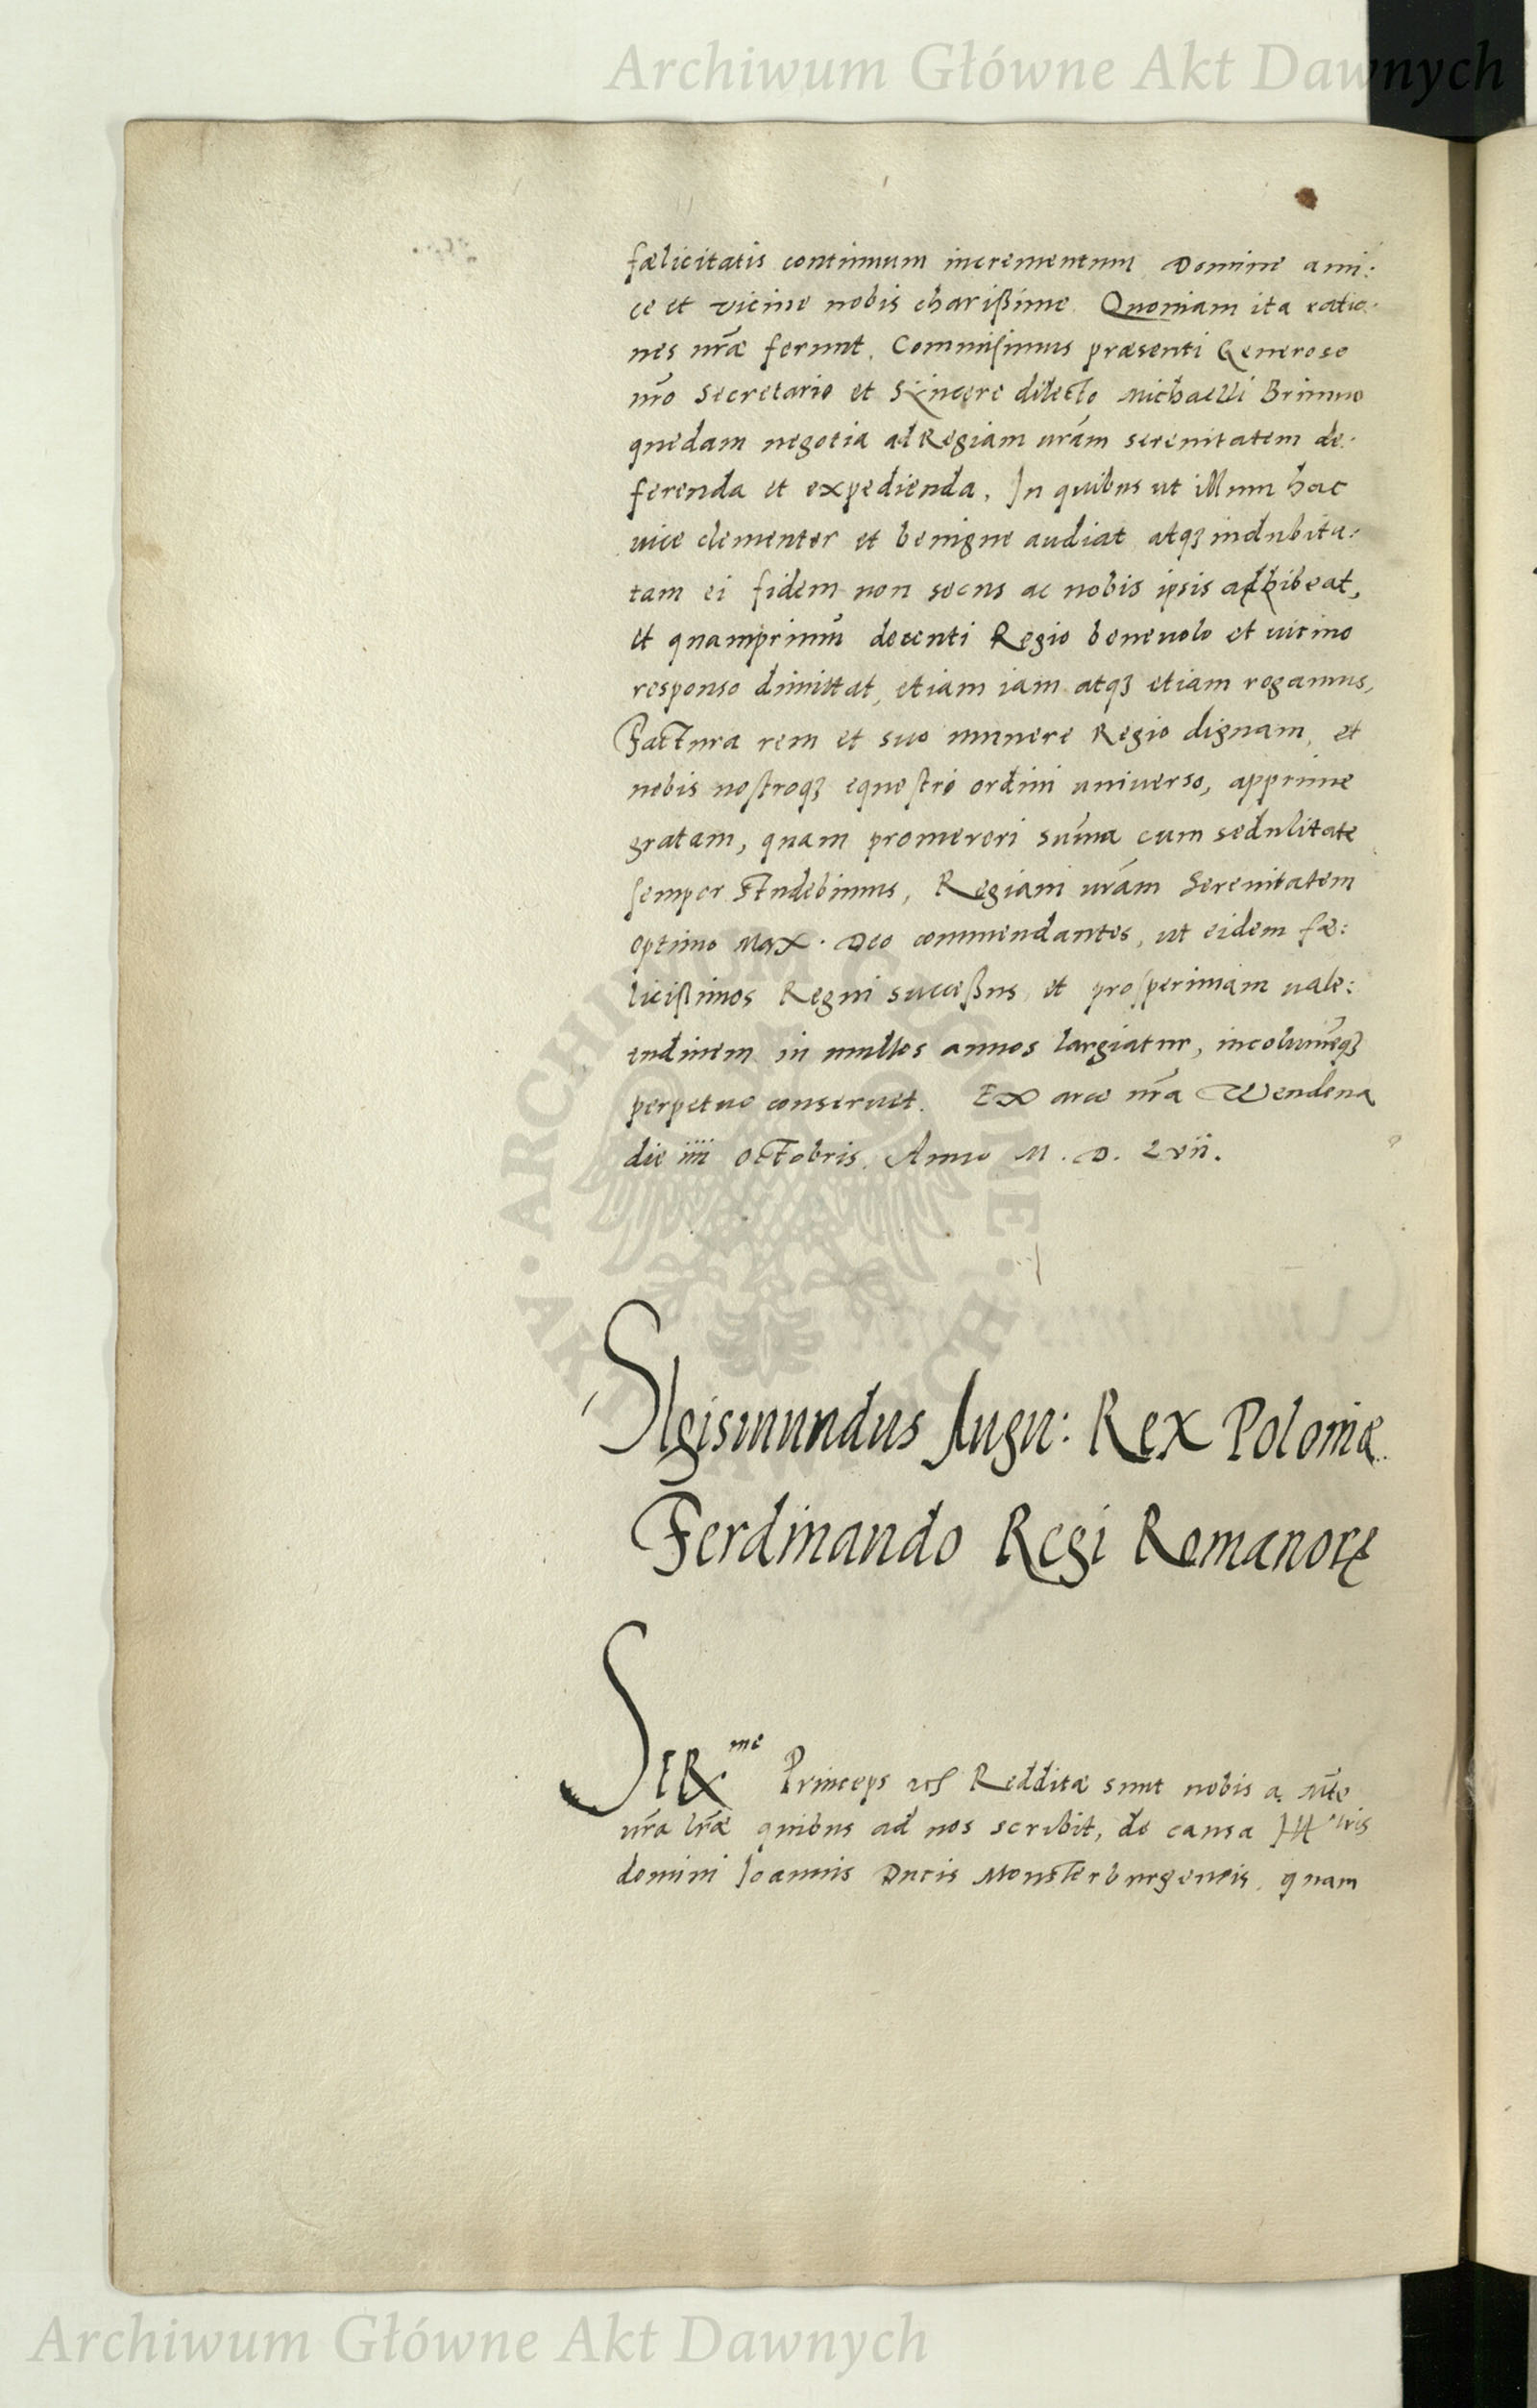 Archiwum Główne Akt Dawnych
fælicitatis continuum incrementum Domine ami:
ce et vicine nobis charißime. Quoniam ita ratio:
nes nr̃æ ferunt. Commisimus præsenti Generoso
nr̃o Secretario et Sincere dilecto Michaelli Brunno
quedam negotia ad Regiam vr̃am serenitatem de:
ferenda et expedienda, In quibus ut illum hac
vice clementer et benigne audiat atqȝ indubita:
tam ei fidem non secus ac nobis ipsis adhibeat,
et quamprimũ decenti Regio benevolo et vicino
responso dimittat, etiam iam atqȝ etiam rogamus,
Factura rem et suo munere Regio dignam, et
nobis nostroqȝ equestri ordini universo, apprime
gratam, quam promereri sũma cum sedulitate
semper studebimus, Regiam vr̃am Serenitatem
optimo Max. Deo commendantes, ut eidem fæ:
licißimos Regni succeßus, et prosperimam vale:
tudinem in multos annos largiatur, incolumẽqȝ
perpetuo conservet. Ex arce nr̃a Wendena
die iiii octobris. Anno M. D. Lvii.
Sigismundus Augu: Rex Poloniæ
Ferdinando Regi Romanorꝝ
Ser.me Princeps etc Redditæ sunt nobis a Mte
vr̃a lr̃æ quibus ad nos scribit, de causa Illtris
domini Joannis Ducis Monsterburgensis, quam
ARCHIWUM GŁÓWNE AKT DAWNYCH
Archiwum Główne Akt Dawnych